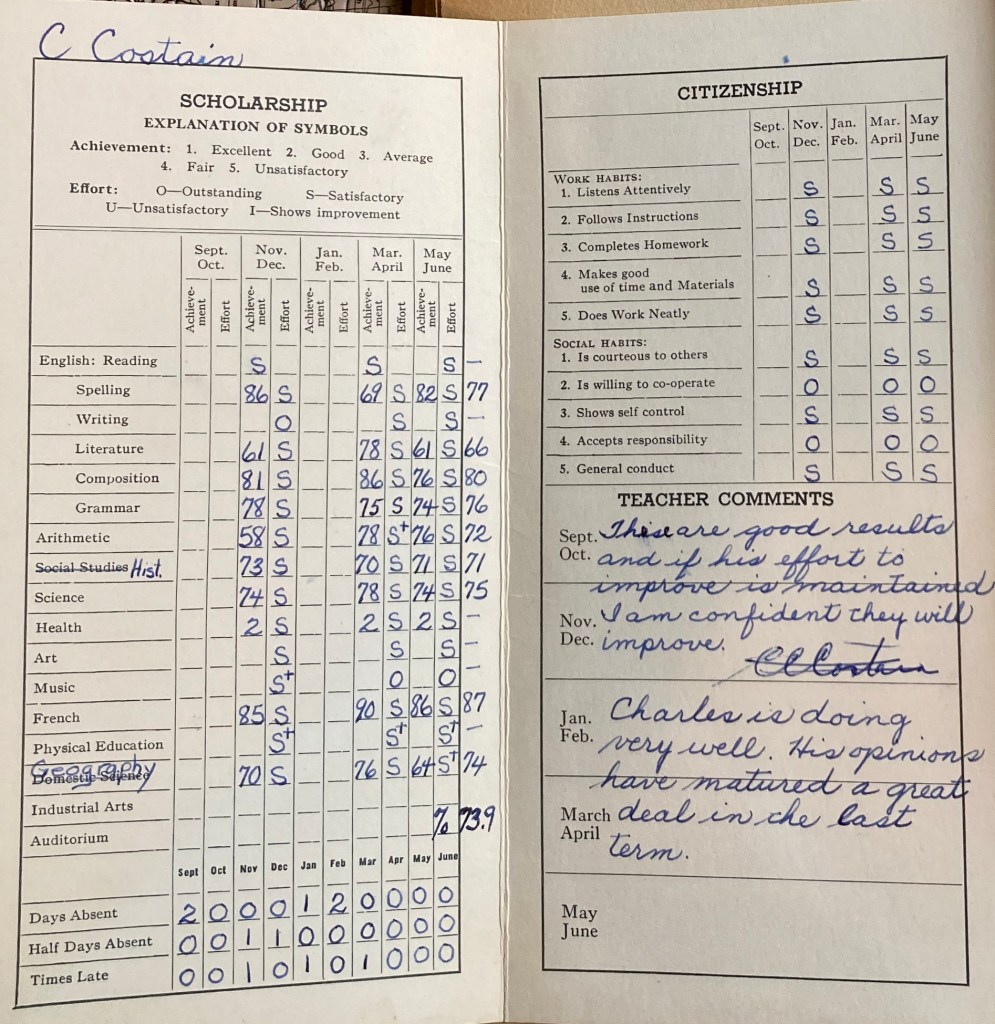 C Costain
SCHOLARSHIP
EXPLANATION OF SYMBOLS
Achievement: 1. Excellent 2. Good 3. Average
4. Fair 5. Unsatisfactory
Effort: O—Outstanding S—Satisfactory
U—Unsatisfactory I—Shows improvement
Sept. Oct. Nov. Dec. Jan. Feb. Mar. April May June
Achieve-ment Effort Achieve-ment Effort Achieve-ment Effort Achieve-ment Effort Achieve-ment Effort
English: Reading S S S —
Spelling 86 S 69 S 82 S 77
Writing O S S —
Literature 61 S 78 S 61 S 66
Composition 81 S 86 S 76 S 80
Grammar 78 S 75 S 74 S 76
Arithmetic 58 S 78 S+ 76 S 72
Social Studies Hist. 73 S 70 S 71 S 71
Science 74 S 78 S 74 S 75
Health 2 S 2 S 2 S —
Art S S S —
Music S+ O O —
French 85 S 90 S 86 S 87
Physical Education S+ S+ S+ —
Domestic Science Geography 70 S 76 S 64 S+ 74
Industrial Arts % 73.9
Auditorium
Sept Oct Nov Dec Jan Feb Mar Apr May June
Days Absent 2 0 0 0 1 2 0 0 0 0
Half Days Absent 0 0 1 1 0 0 0 0 0 0
Times Late 0 0 1 0 1 0 1 0 0 0
CITIZENSHIP
Sept. Oct. Nov. Dec. Jan. Feb. Mar. April May June
WORK HABITS:
1. Listens Attentively S S S
2. Follows Instructions S S S
3. Completes Homework S S S
4. Makes good
use of time and Materials S S S
5. Does Work Neatly S S S
SOCIAL HABITS:
1. Is courteous to others S S S
2. Is willing to co-operate O O O
3. Shows self control S S S
4. Accepts responsibility O O O
5. General conduct S S S
TEACHER COMMENTS
Sept. These are good results
Oct. and if his effort to
improve is maintained
Nov. I am confident they will
Dec. improve.
CC Costain
Jan. Charles is doing
Feb. very well. His opinions
have matured a great
March deal in the last
April term.
May
June